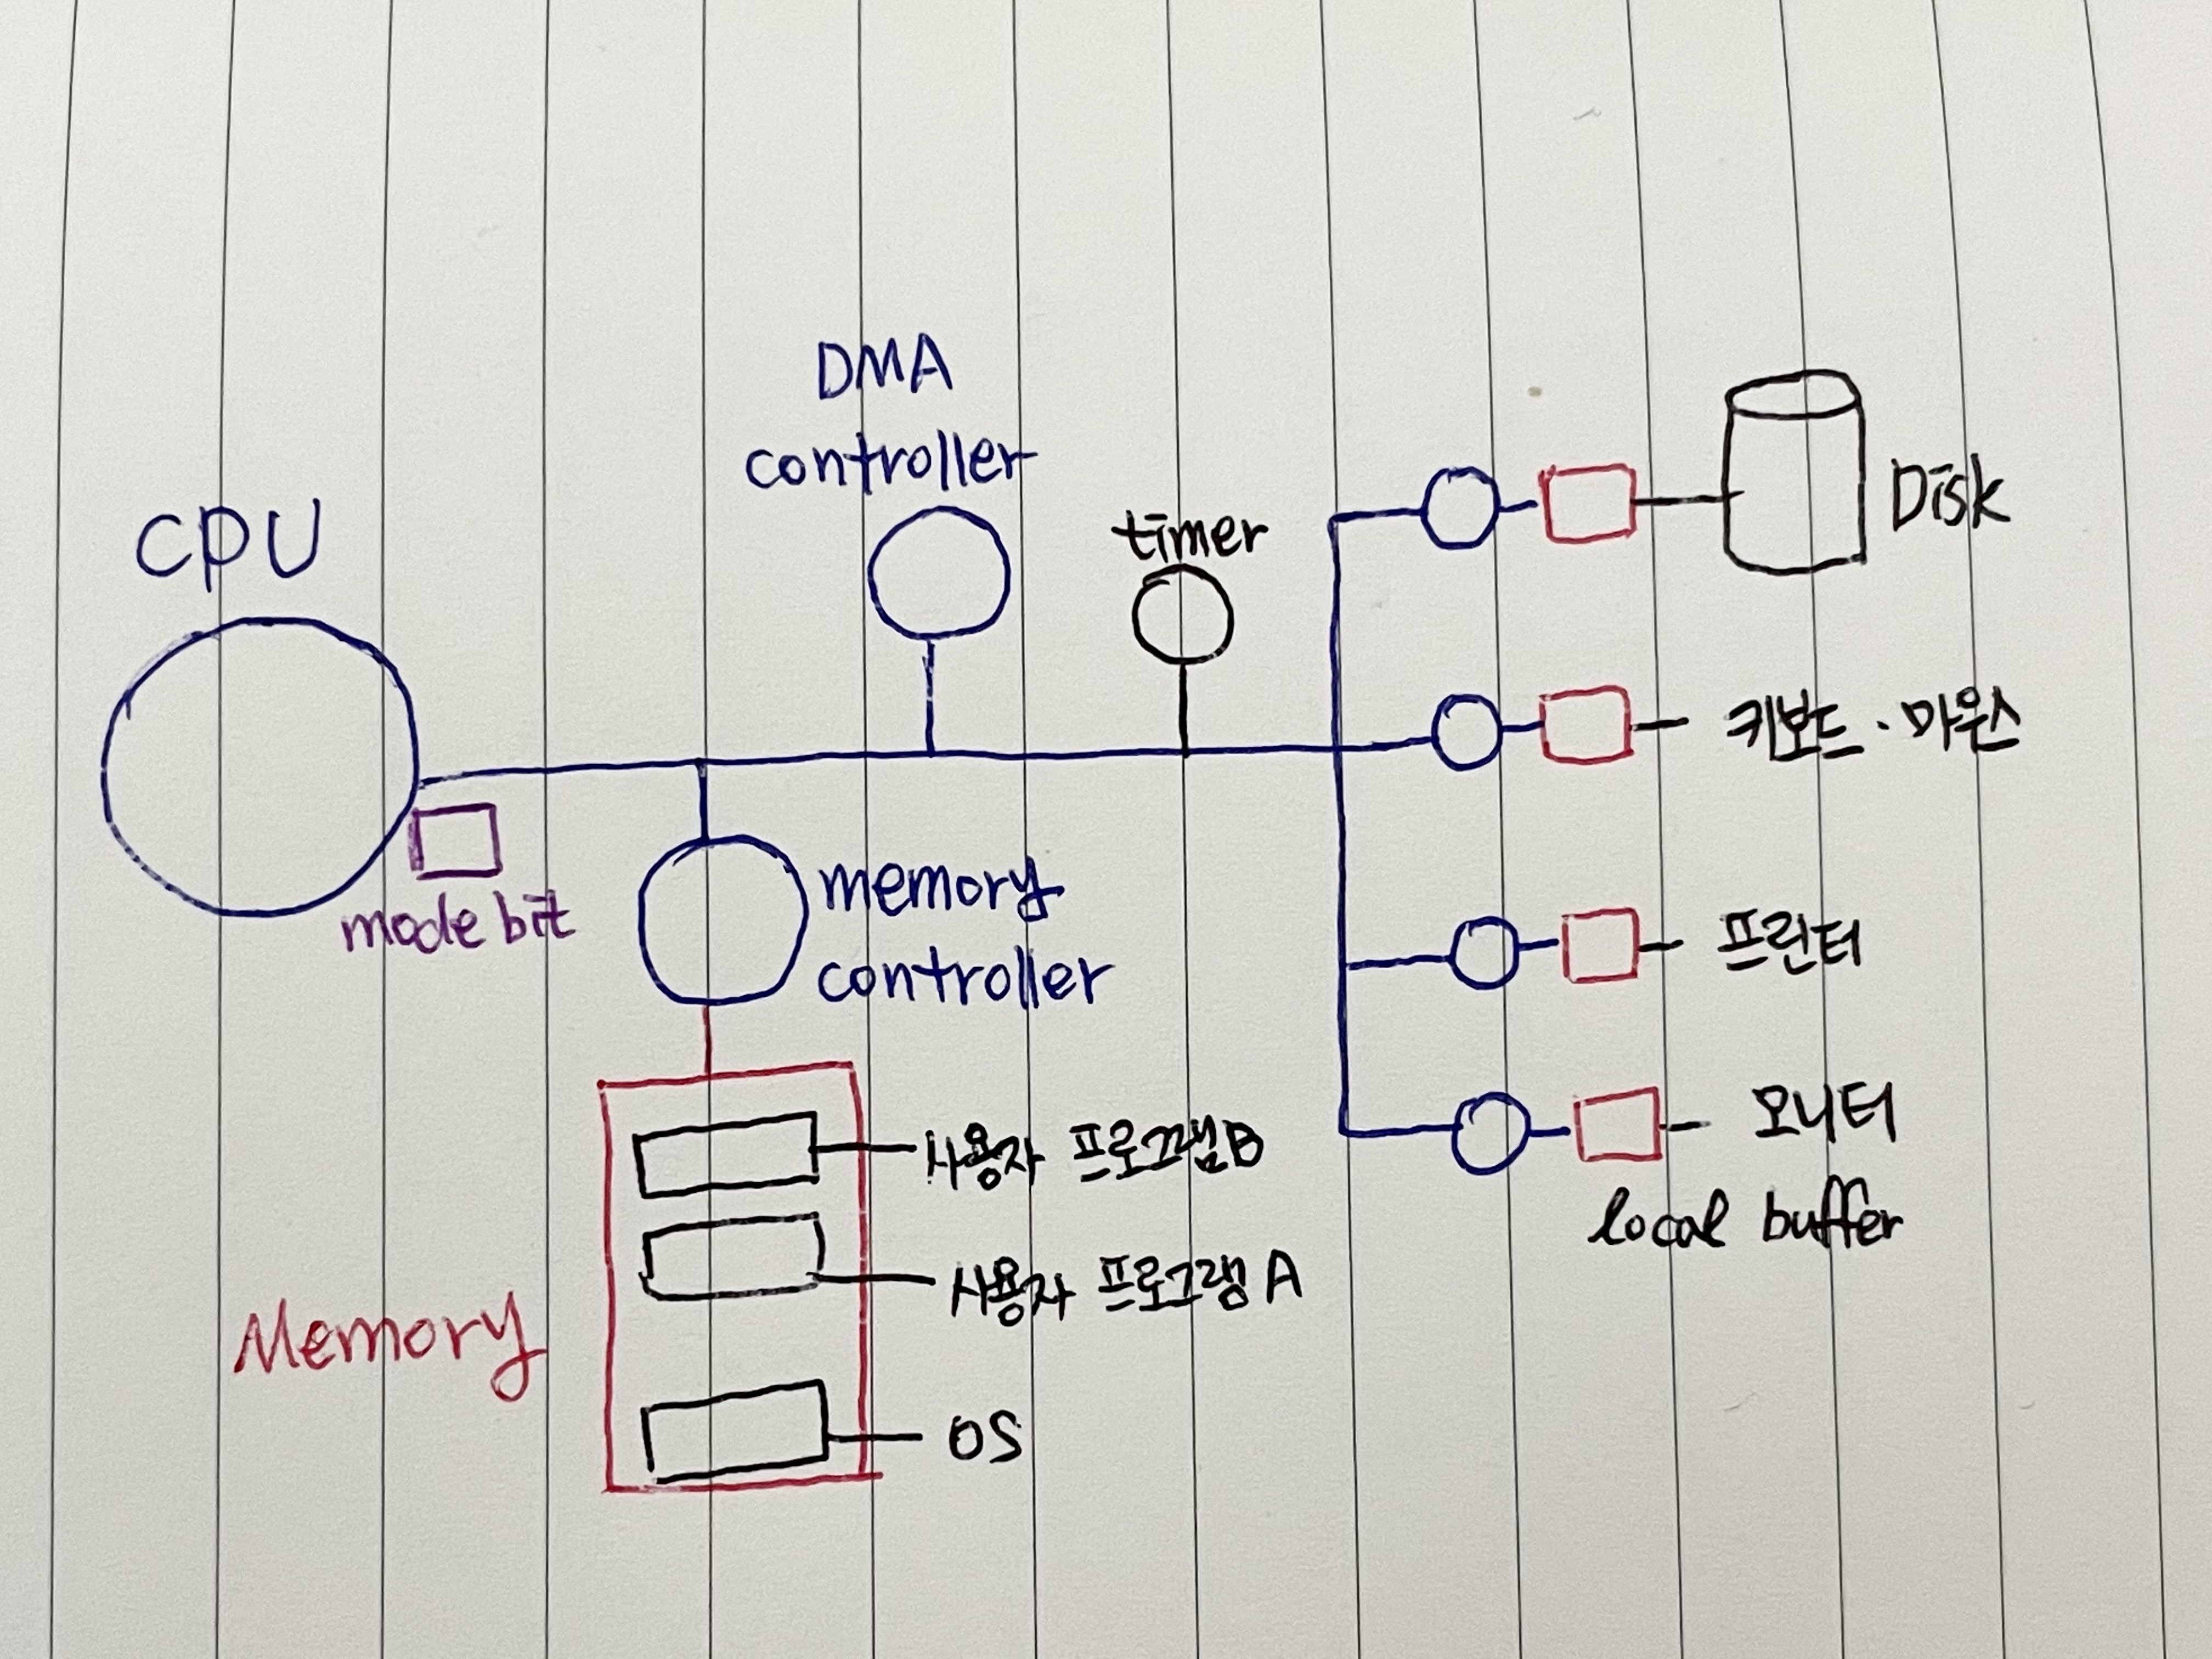 DMA
controller
CPU
timer
Disk
키보드·마우스
mode bit
memory
controller
프린터
모니터
local buffer
사용자 프로그램B
사용자 프로그램 A
Memory
OS